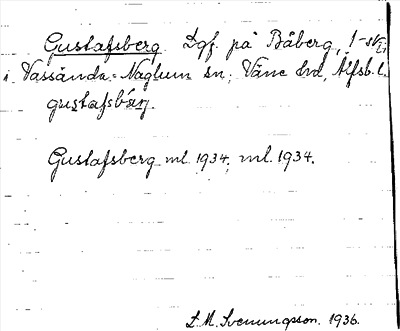 Gustafsberg. Dgf. på Båberg,
i Vassända-Naglum sn; Väne hd, Älfsb. l.
gustafsbärj.
Gustafsberg ml. 1934; ml. 1934.
L. M. Svenungsson. 1936.